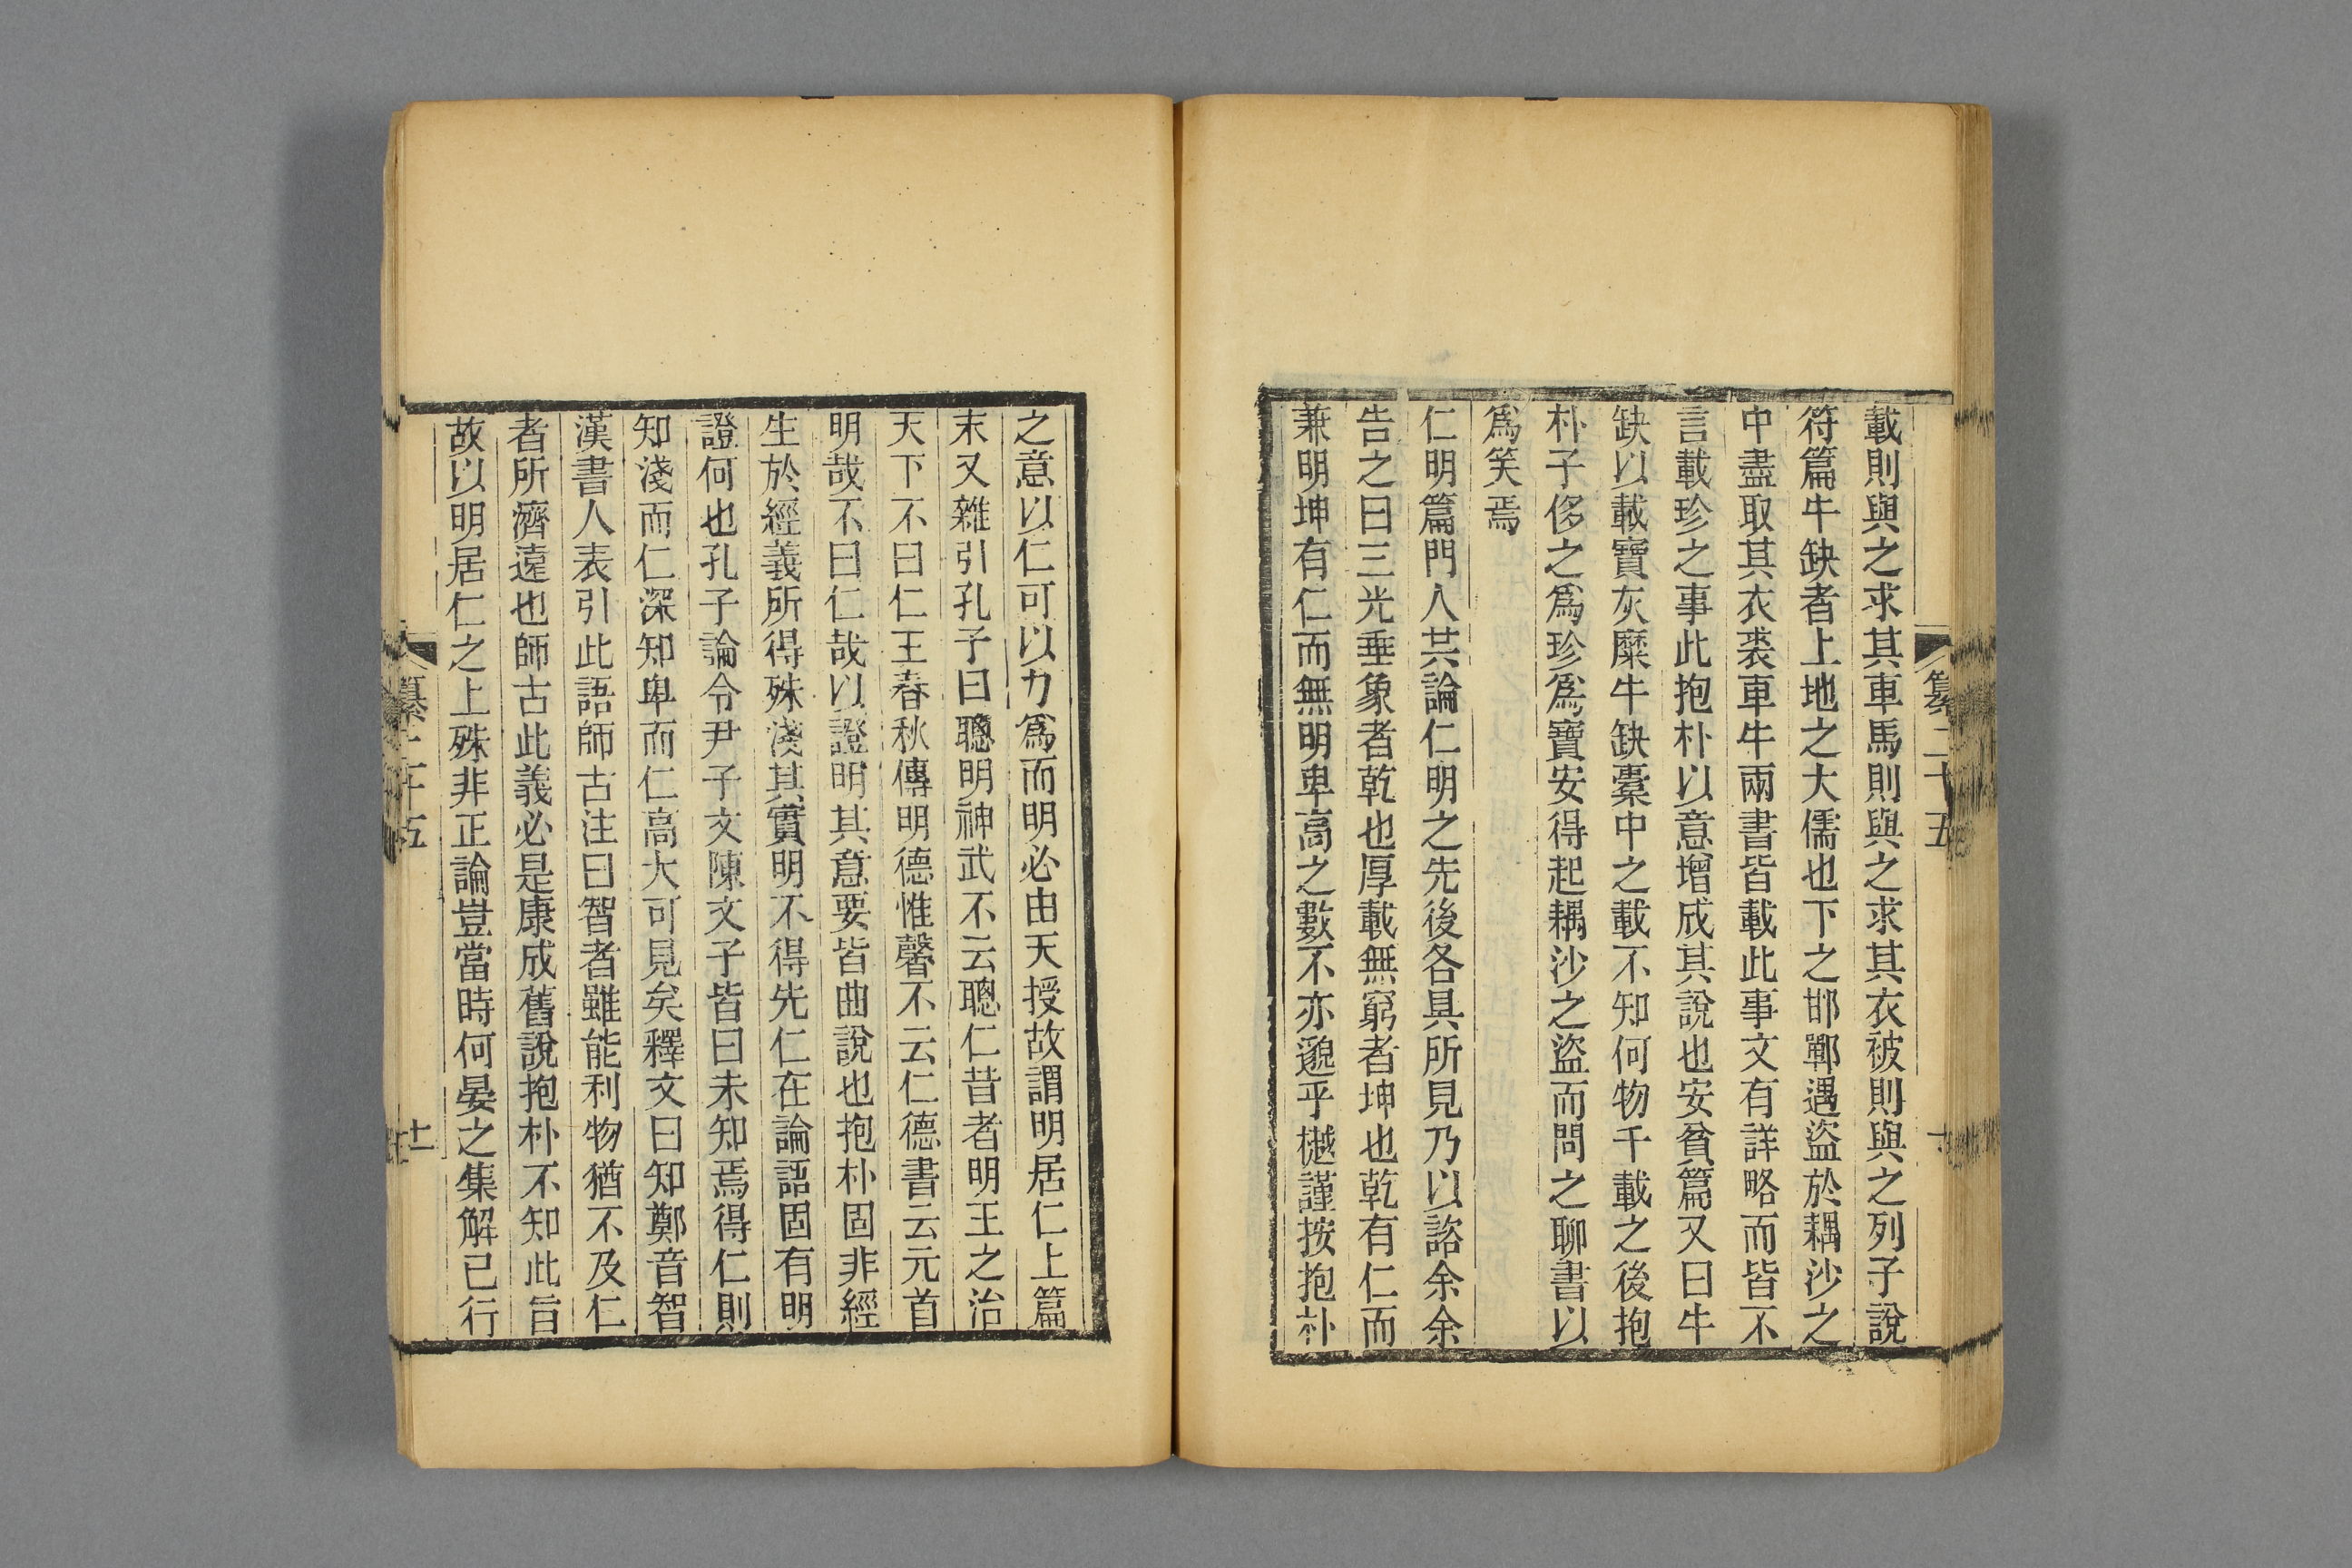 載則與之求其車馬則與之求其衣被則與之列子說
符篇牛缺者上地之大儒也下之邯鄲遇盜於耦沙之
中盡取其衣裘車牛兩書皆載此事文有詳略而皆不
言載珍之事此抱朴以意增成其說也安貧篇又曰牛
缺以載寶灰糜牛缺橐中之載不知何物千載之後抱
朴子侈之爲珍爲寶安得起耦沙之盜而問之聊書以
爲笑焉
仁明篇門人共論仁明之先後各具所見乃以諮余余
告之曰三光垂象者乾也厚載無窮者坤也乾有仁而
兼明坤有仁而無明卑高之數不亦邈乎樾謹按抱朴
纂二十五
十
之意以仁可以力爲而明必由天授故謂明居仁上篇
末又雜引孔子曰聰明神武不云聰仁昔者明王之治
天下不曰仁王春秋傳明德惟馨不云仁德書云元首
明哉不曰仁哉以證明其意要皆曲說也抱朴固非經
生於經義所得殊淺其實明不得先仁在論語固有明
證何也孔子論令尹子文陳文子皆曰未知焉得仁則
知淺而仁深知卑而仁高大可見矣釋文曰知鄭音智
漢書人表引此語師古注曰智者雖能利物猶不及仁
者所濟遠也師古此義必是康成舊說抱朴不知此旨
故以明居仁之上殊非正論豈當時何晏之集解已行
纂二十五
十一